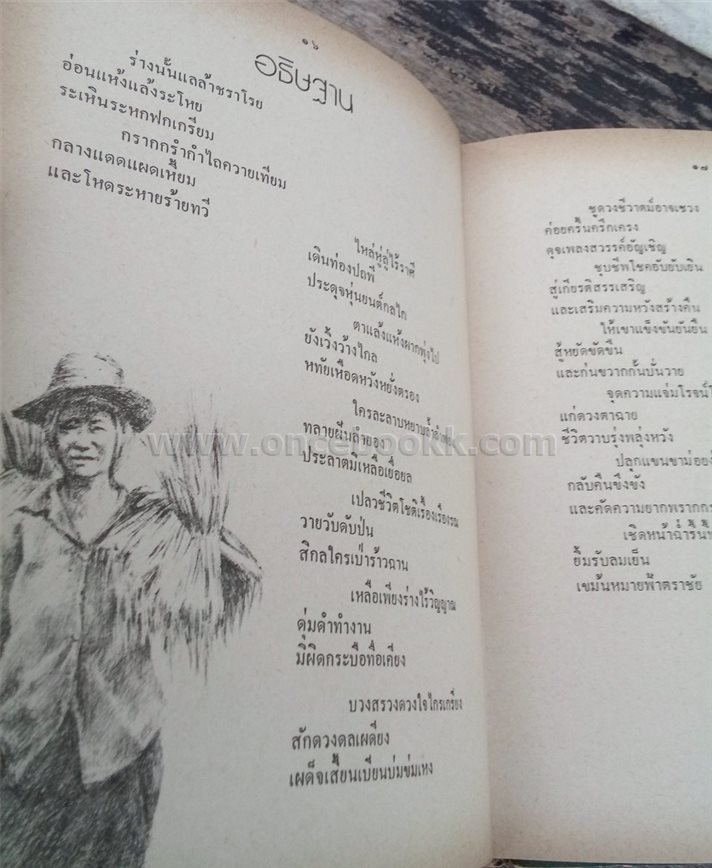 ๑๖
อธิษฐาน
ร่างนั้นแลล้าชราโรย
อ่อนแห้งแล้งระโหย
ระเหินระหกฟกเกรียม
กรากกรำกำไถควายเทียม
กลางแดดแผดเหี้ยม
และโหดระหายร้ายทวี
ไหล่หู่ลู่ไร้ราศี
เดินท่องปถพี
ประดุจหุ่นยนต์กลไก
ตาแล้งแห้งผากพุ่งไป
ยังเวิ้งว้างไกล
หทัยเหือดหวังหยั่งตรอง
ใครละลาบหยาบ
ทลายฝันลำยอง
ประลาตมิเหลือเยื่อยล
เปลวชีวิตโชติเรื้องเรืองรณ
วายวับดับป่น
สิกลใครเป่าร้าวฉาน
เหลือเพียงร่างไร้วิญญาณ
ดุ่มดำทำงาน
มิผิดกระบือทื่อเคียง
บวงสรวงดวงใจไกรเกรียง
สักดวงดลเผดียง
เผด็จเสี้ยนเบียนบ่มข่มเหง
www.oncebookk.com
๑๗
ชูดวงชีวาตม์อาจเชวง
ค่อยครื้นครึกเครง
ดุจเพลงสวรรค์อัญเชิญ
ชุบชีพโชคอับยับเยิน
สู่เกียรติสรรเสริญ
และเสริมความหวังสร้างคืน
ให้เขาแข็งขันยันยืน
สู้หยัดขัดขืน
และก่นขวากกั้นบั่นวาย
จุดความแจ่มโรจน์
แก่ดวงตาฉาย
ชีวิตวาบรุ่งพลุ่งหวัง
ปลุกแขนขาม่อย
กลับคืนขึงขัง
และคัดความยากพราก
เชิดหน้าฉ่ำรื้น
ยิ้มรับลมเย็น
เขม้นหมายฟ้าตราชัย